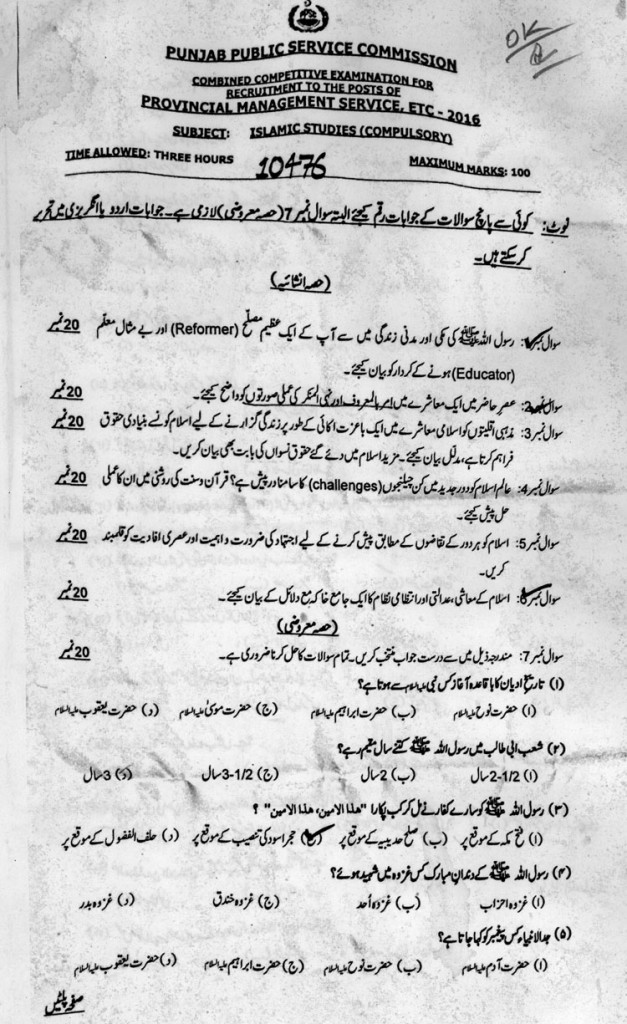 OK
PUNJAB PUBLIC SERVICE COMMISSION
COMBINED COMPETITIVE EXAMINATION FOR
RECRUITMENT TO THE POSTS OF
PROVINCIAL MANAGEMENT SERVICE, ETC - 2016
SUBJECT: ISLAMIC STUDIES (COMPULSORY)
TIME ALLOWED: THREE HOURS 10476 MAXIMUM MARKS: 100
نوٹ: کوئی سے پانچ سوالات کے جوابات رقم کیجئے البتہ سوال نمبر 7 (حصہ معروضی) لازمی ہے۔ جوابات اردو یا انگریزی میں تحریر
کر سکتے ہیں۔
(حصہ انشائیہ)
سوال نمبر1: رسول اللہ ﷺ کی مکی اور مدنی زندگی میں سے آپ کے ایک عظیم مصلح (Reformer) اور بے مثال معلم 20 نمبر
(Educator) ہونے کے کردار کو بیان کیجئے۔
سوال نمبر2: عصرِ حاضر میں ایک معاشرے میں امر بالمعروف اور نہی المنکر کی عملی صورتوں کو واضح کیجئے۔ 20 نمبر
سوال نمبر3: مذہبی اقلیتوں کو اسلامی معاشرے میں ایک باعزت اکائی کے طور پر زندگی گزارنے کے لیے اسلام کونسے بنیادی حقوق 20 نمبر
فراہم کرتا ہے، مدلل بیان کیجئے۔ مزید اسلام میں دئے گئے حقوق نسواں کی بابت بھی بیان کریں۔
سوال نمبر4: عالم اسلام کو دور جدید میں کن چیلنجوں (challenges) کا سامنا درپیش ہے؟ قرآن و سنت کی روشنی میں ان کا عملی 20 نمبر
حل پیش کیجئے۔
سوال نمبر5: اسلام کو ہر دور کے تقاضوں کے مطابق پیش کرنے کے لیے اجتہاد کی ضرورت و اہمیت اور عصری افادیت کو قلمبند 20 نمبر
کریں۔
سوال نمبر6: اسلام کے معاشی، عدالتی اور انتظامی نظام کا ایک جامع خاکہ مع دلائل کے بیان کیجئے۔ 20 نمبر
(حصہ معروضی)
سوال نمبر7: مندرجہ ذیل میں سے درست جواب منتخب کریں۔ تمام سوالات کا حل کرنا ضروری ہے۔ 20 نمبر
(۱) تاریخ ادیان کا باقاعدہ آغاز کس نبی علیہ السلام سے ہوتا ہے؟
(ا) حضرت نوح علیہ السلام (ب) حضرت ابراہیم علیہ السلام (ج) حضرت موسیٰ علیہ السلام (د) حضرت یعقوب علیہ السلام
(۲) شعب ابی طالب میں رسول اللہ ﷺ کتنے سال مقیم رہے؟
(ا) 2-1/2 سال (ب) 2 سال (ج) 3-1/2 سال (د) 3 سال
(۳) رسول اللہ ﷺ کو سارے کفار نے مل کر کب پکارا "ھذا الامین، ھذا الامین" ؟
(ا) فتح مکہ کے موقع پر (ب) صلح حدیبیہ کے موقع پر (ج) حجر اسود کی تنصیب کے موقع پر (د) حلف الفضول کے موقع پر
(۴) رسول اللہ ﷺ کے دندان مبارک کس غزوہ میں شہید ہوئے؟
(ا) غزوہ احزاب (ب) غزوہ اُحد (ج) غزوہ خندق (د) غزوہ بدر
(۵) جد الانبیاء کس پیغمبر کو کہا جاتا ہے؟
(ا) حضرت آدم علیہ السلام (ب) حضرت نوح علیہ السلام (ج) حضرت ابراہیم علیہ السلام (د) حضرت یعقوب علیہ السلام
صفحہ پلٹیں